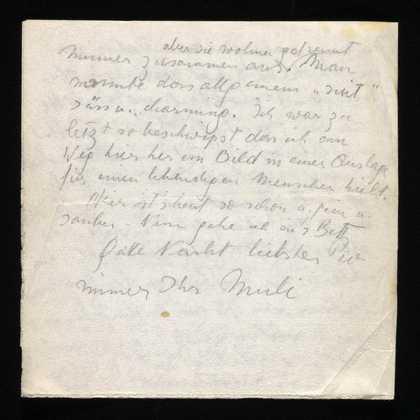 aber sie wohnen getrennt
immer zusammen aus. Man
nannte das allgemein "
süss u. charming. Ich war zu
letzt so beschwipst das ich am
Weg hier her ein Bild in einer Auslage
für einen lebendigen Menschen hielt.
Hier ist's heut so schön u. fein u.
sauber. Nun gehe ich in's Bett
Gute Nacht liebster
immer Ihr